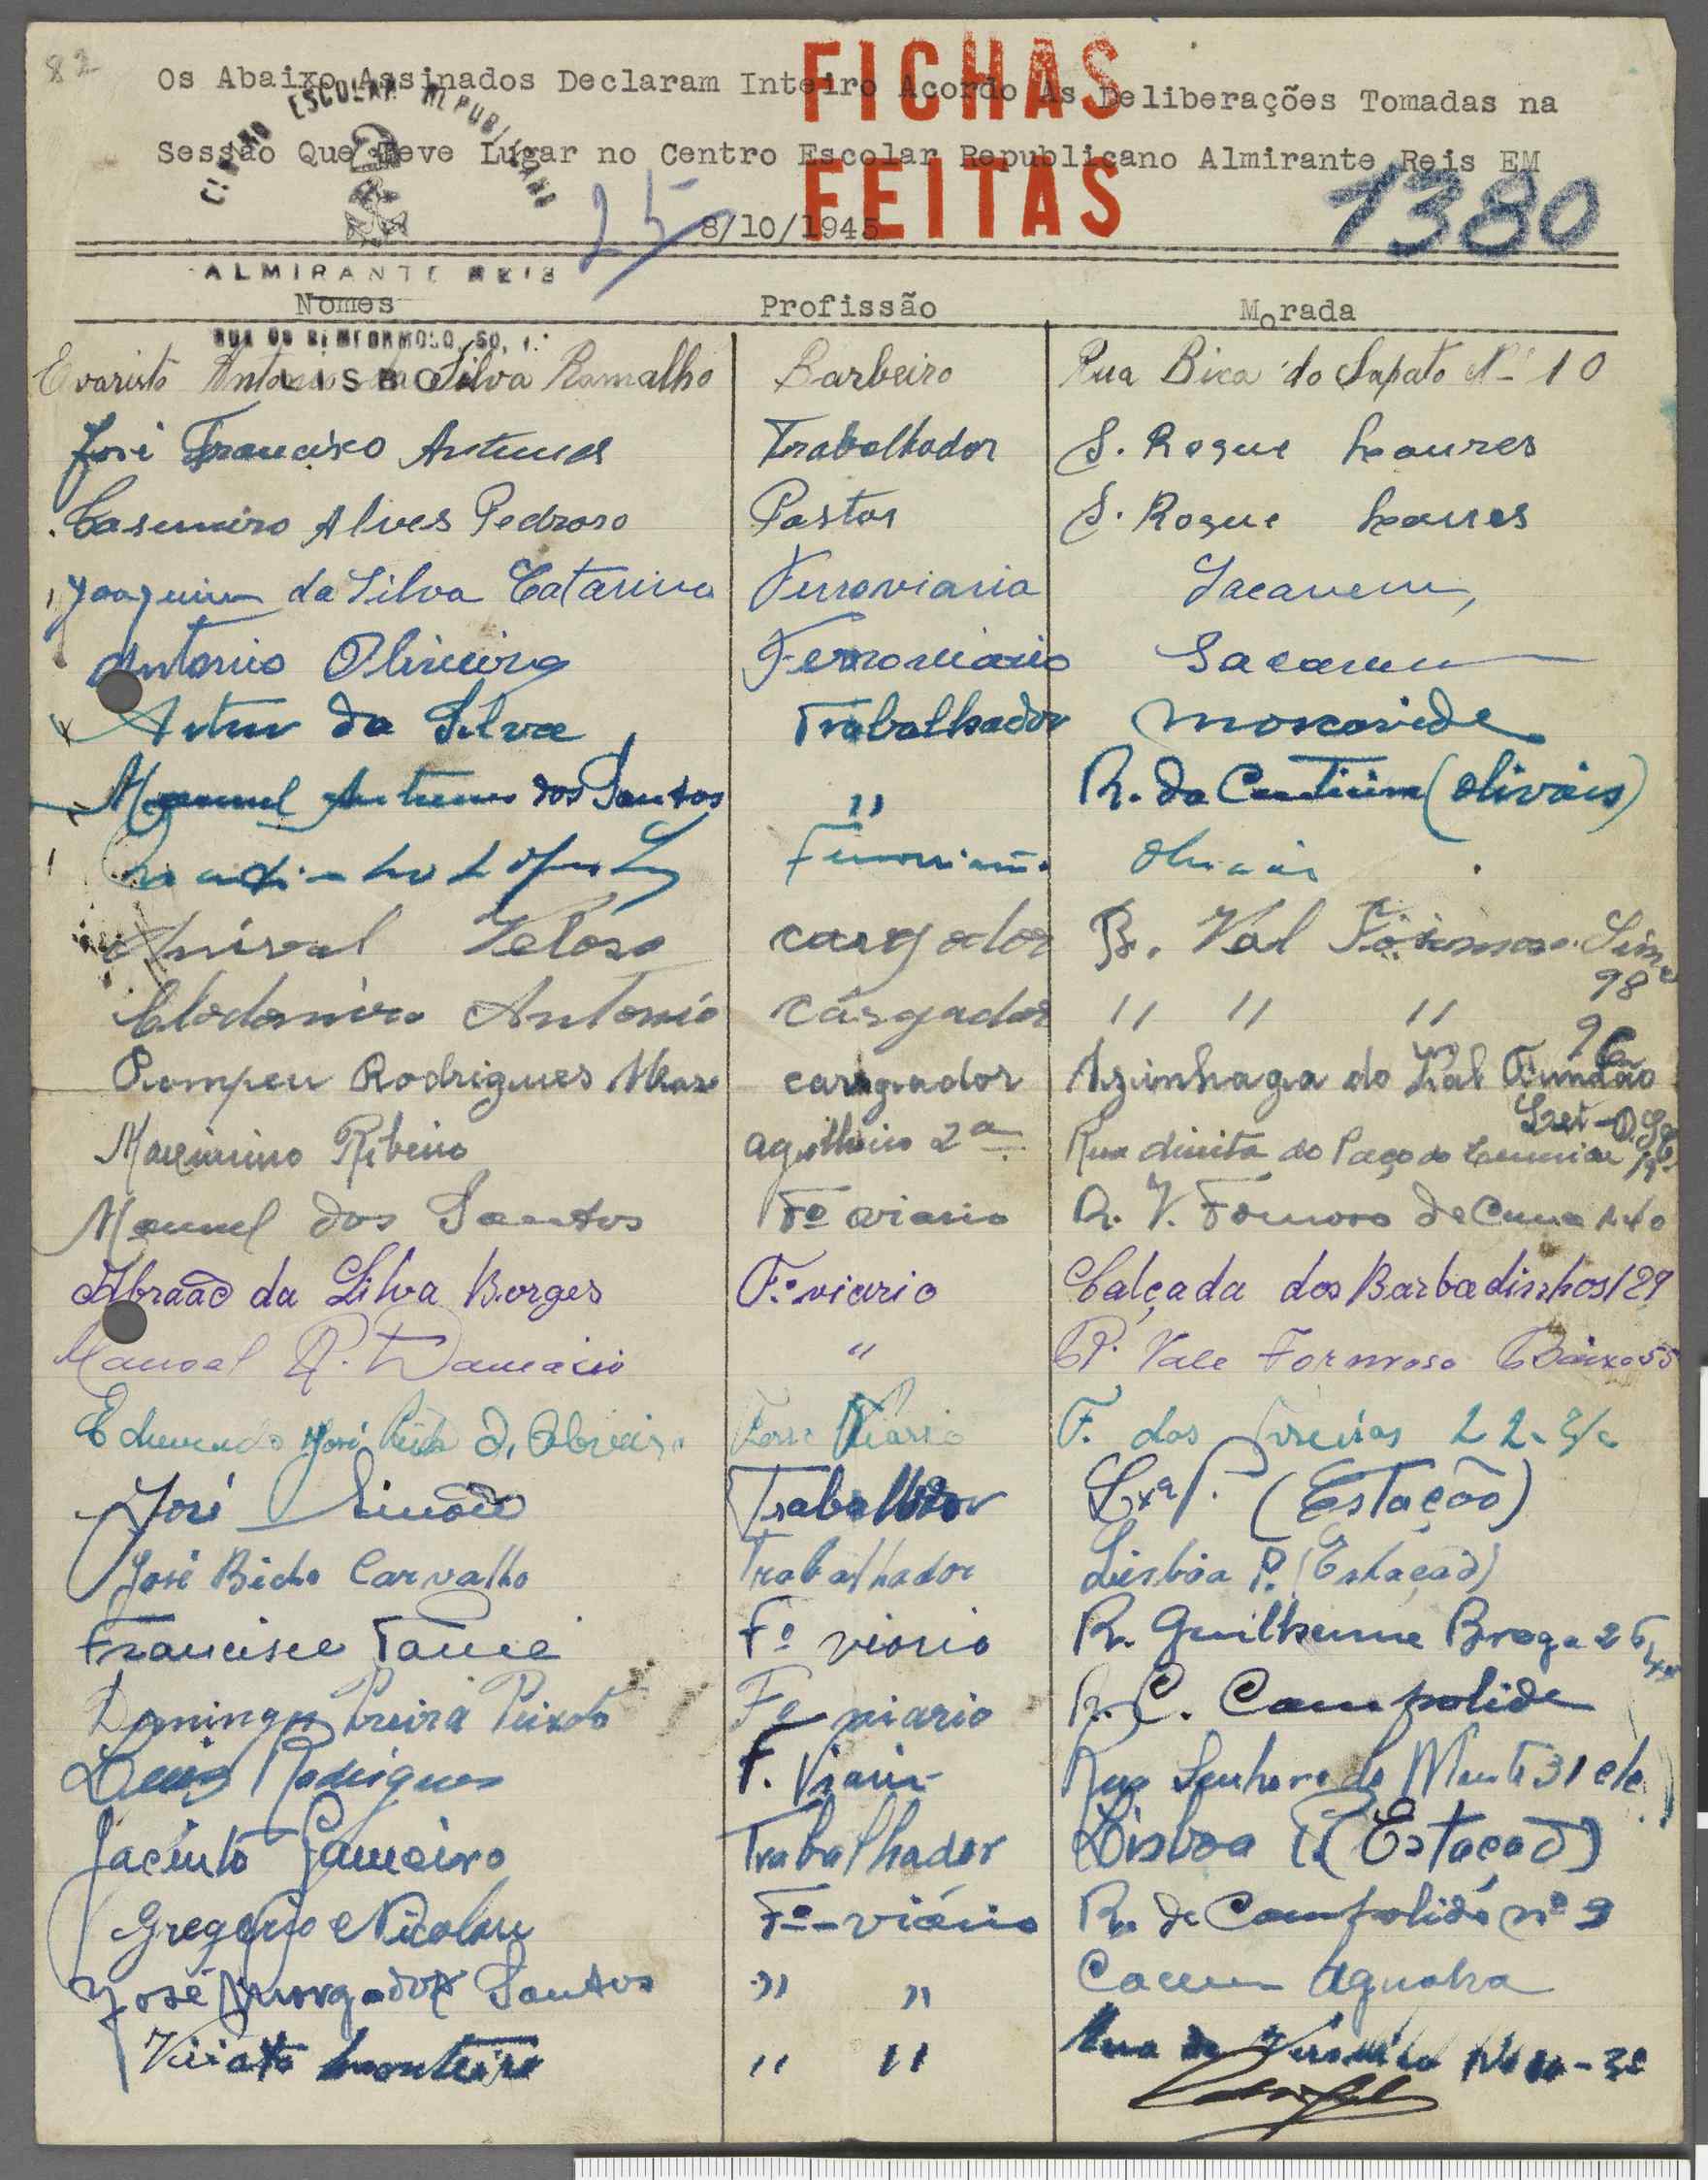 82
Os Abaixo Assinados Declaram Inteiro Acordo As Deliberações Tomadas na
FICHAS
CENTRO ESCOLAR REPUBLICANO
Sessão Que Teve Lugar no Centro Escolar Republicano Almirante Reis EM
FEITAS
25
8/10/1945
1380
ALMIRANTE REIS
Nomes Profissão Morada
RUA DO BEMFORMOSO, 50, 1.º
LISBOA
Evaristo Antonio da Silva Ramalho Barbeiro Rua Bica do Sapato Nº 10
José Francisco Antunes Trabalhador S. Roque Loures
Casemiro Alves Pedroso Pastor S. Roque Loures
Joaquim da Silva Catarino Ferroviario Sacavem,
Antonio Oliveira Ferroviario Sacavem
Artur da Silva Trabalhador Moscavide
Manuel Antunes dos Santos " R. da Centieira (Olivais)
Ferroviario Olivais
Anibal Veloso carregador R. Val Formoso Sima 98
Clodomiro Antonio Carregador " " " 96
Pompeu Rodrigues carregador Azinhaga do Val Fundão
Maximino Ribeiro agulheiro 2ª Rua direita do Paço do Lumiar
Manuel dos Santos Fº viario R. V. Formoso de Cima
Abraão da Silva Borges F.º viario Calçada dos Barbadinhos 129
Manoel R. Damacio " R. Vale Formoso Baixo 55
José d'Oliveira Ferro Viario 22
José Simão Trabalhador Lxª P. (Estação)
José Bicho Carvalho Trabalhador Lisbôa P. (Estação)
Francisco Fº viario R. Guilherme Braga
Domingos Pereira Peixoto Fº viario R. C. Campolide
Luis Rodrigues F. Viario Rua Senhora do Monte 31
Jacinto Gameiro Trabalhador Lisboa P. (Estação)
Gregorio Nicolau Fº-viário R. de Campolide nº 9
José Morgado Santos " " Cacem Agualva
Viriato Monteiro " " Rua